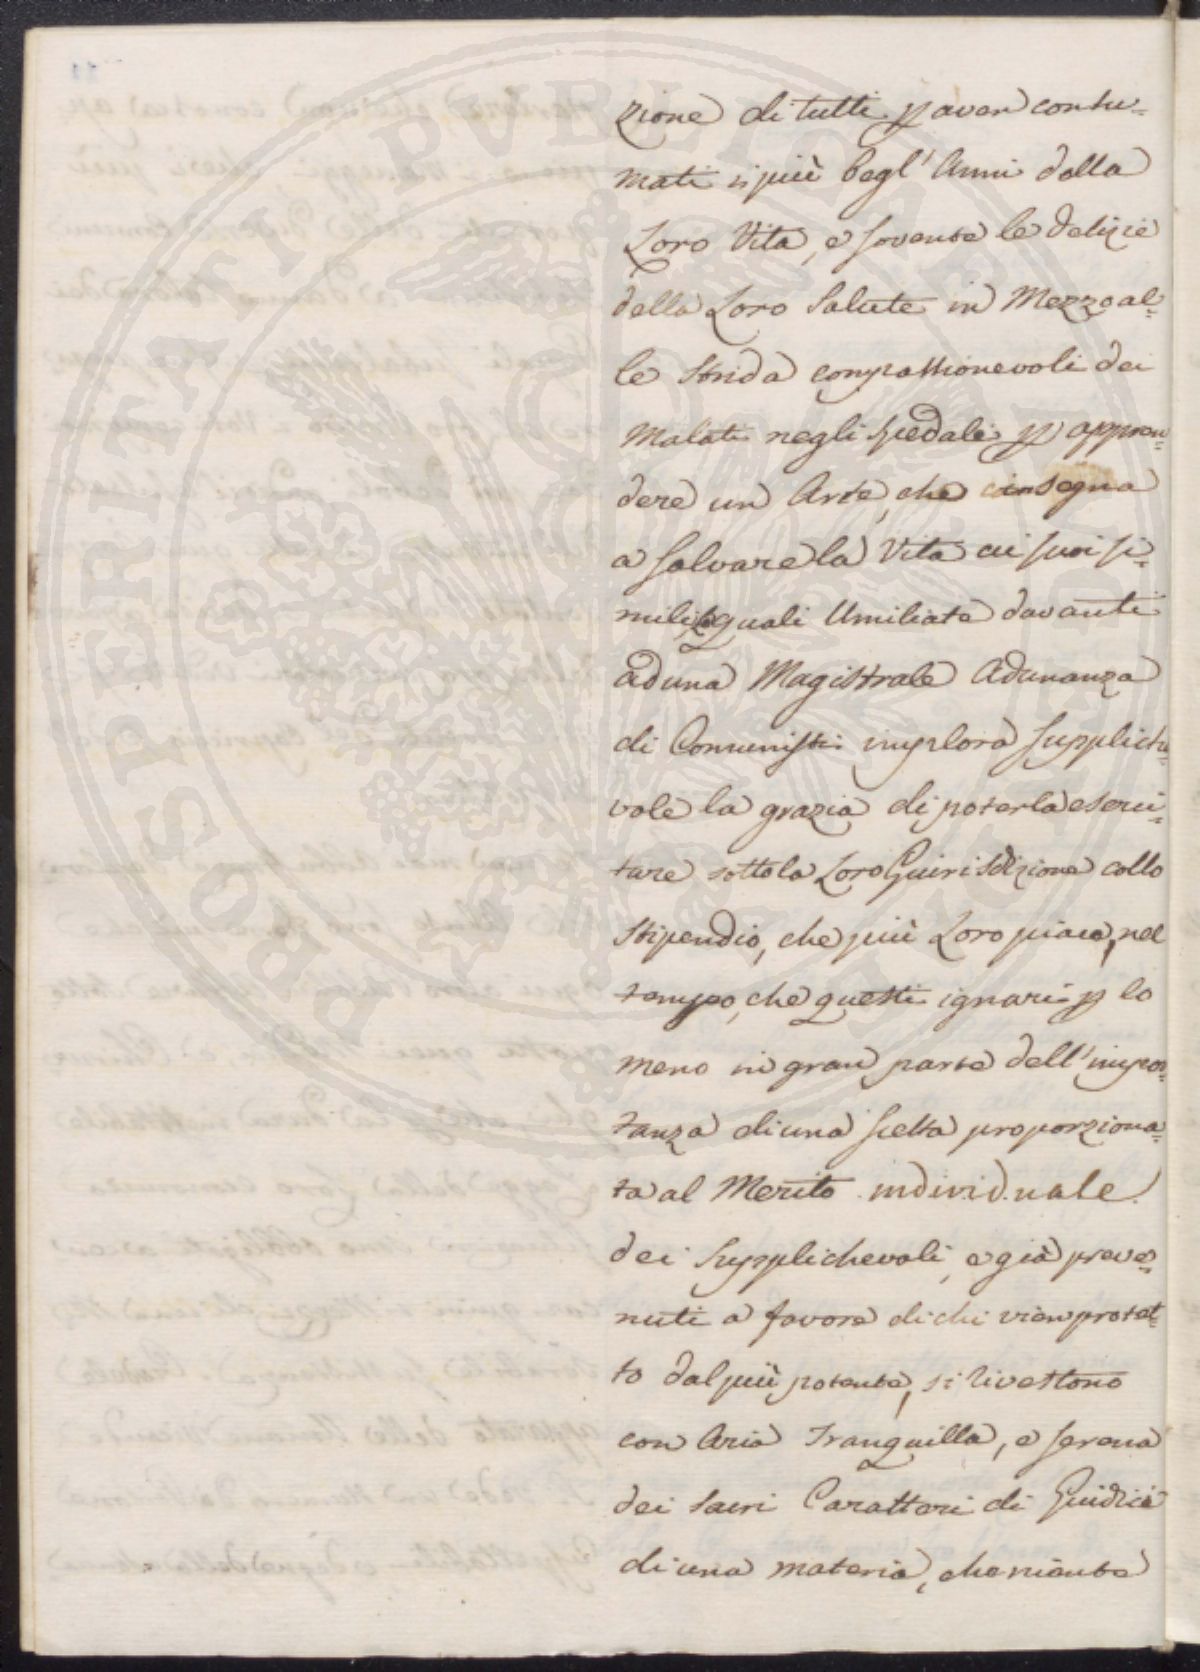 zione di tutti p aver consu=
mati i più begl' Anni della
Loro Vita, e sovente le delizie
della Loro Salute in Mezzo al=
le strida compassionevoli dei
Malati negli Spedali p appren=
dere un Arte, che insegna
a salvare la Vita ai suoi si=
mili, quali Umiliate davanti
ad una Magistrale Adunanza
di Comunisti implora supplich=
vole la grazia di poterla eserci=
tare sotto la Loro Guirisdizione collo
stipendio, che più Loro piace, nel
tempo, che questi ignari p lo
meno in gran parte dell' impor=
tanza di una scelta proporziona=
ta al Merito individuale
dei supplichevoli, e già preve=
nuti a favore di chi vien protet=
to dal più potente, si rivestono
con Aria Tranquilla, e serena
dei sacri Caratteri di Guidici
di una materia, che niente
PROSPERITATI PVBLICAE